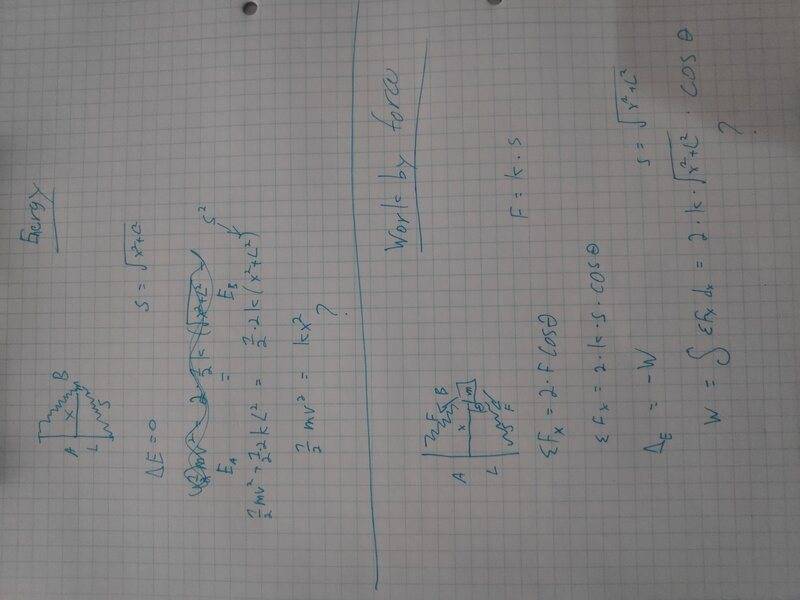 Energy
A
B
x
L
S
S = √x²+L²
ΔE = 0
E_A = E_B
S²
½mv² + ½·2kL² = ½·2k(x²+L²)
½mv² = kx²
?
Work by force
A
B
F
x
m
θ
L
F
F = k·s
ΣFx = 2·F cosθ
ΣFx = 2·k·s·cosθ
ΔE = -W
s = √x²+L²
W = ∫ΣFx dx = 2·k·√x²+L² · cosθ
?